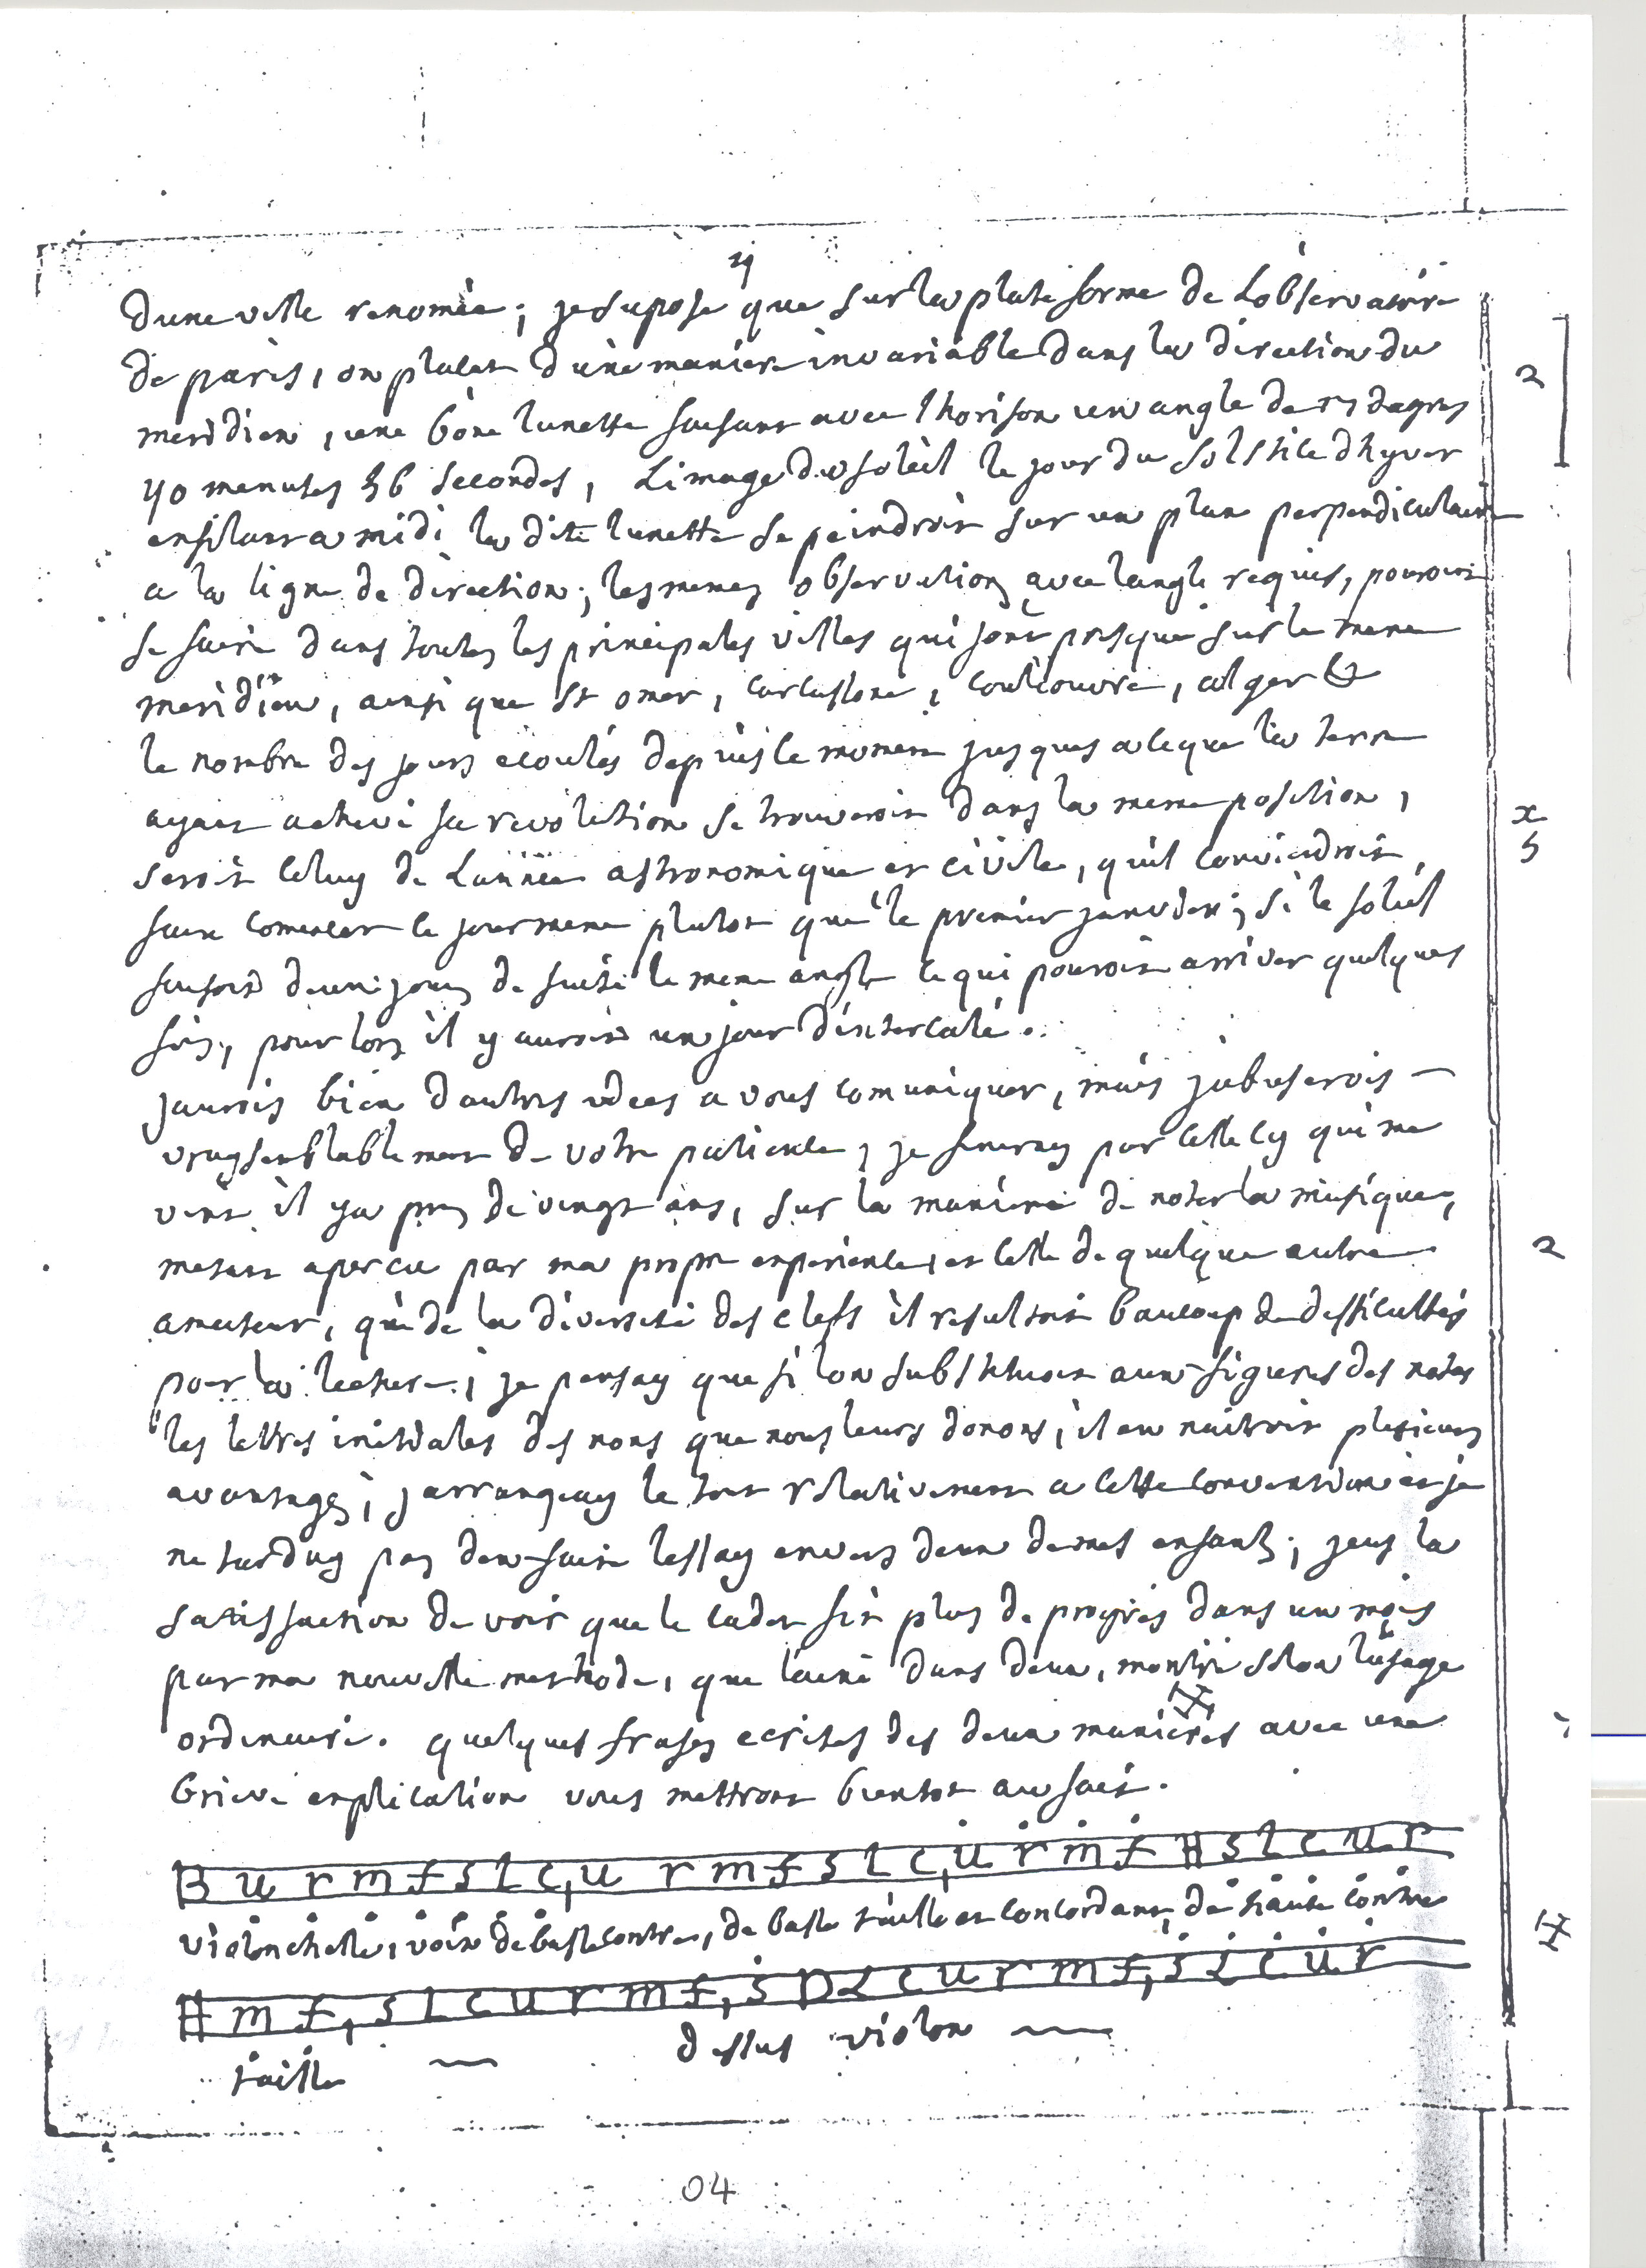 4
dune ville renomée; je supose que sur la plate forme de Lobservatoire
de paris, on placat d'une maniere invariable dans la direction du
meridien, une bone lunette faisant avec lhorison un angle de 17 degres
40 menutes 56 secondes, Limage du soleil le jour du solstice dhyver
enfilant a midi la dite lunette se peindroit sur un plan perpendiculaire
a la ligne de direction; les memes observations avec langle requis, pouroient
se faire dans toutes les principales villes qui sont presque sur le meme
meridien, ainsi que st omer, carcassone, coulioure, alger &
le nombre des jours ecoulés depuis le moment jusques a ceque la terre
ayant achevé sa revolution se trouveroit dans la meme position,
seroit celuy de Lannée astronomique et civile, quil conviendroit
faire comencer ce jour meme plutot que le premier janvier; si le soleil
faisoit deux jours de suite le meme angle ce qui pouroit arriver quelques
fois, pour lors il y auroit un jour d'intercalé.
jaurois bien dautres idees a vous comuniquer, mais jabuserois
vraysemblablement de votre patience, je finiray par celle cy qui me
vint il ya pres de vingt ans, sur la maniere de noter la musique,
metant apercu par ma propre experience, et celle de quelque autre
amateur, que de la diversité des clefs il resultoit baucoup de dificultés
pour la lecture; je pensay que si lon substituoit aux figures des notes
les lettres initiales des noms que nous leurs donons, il en naitroit plusieurs
avantages; jarrangeay le tout relativement a cette convention et je
ne tarday pas den faire lessay envers deux de mes enfants; jeus la
satisfaction de voir que le cadet fit plus de progrès dans un mois
par ma nouvelle methode, que lainé dans deux, montré selon lusage
ordinaire. quelques frases ecrites des deux manieres avec une
brieve explication vous mettront bientot au fait.
B u r m f s l c, u r m f s l c, u r m f H s l c u r
violonchelle, voix de basse contre, de basse taille et concordant, de haute contre
H m f, s l c u r m f, s D l c u r m f, s l c u r
taille dessus violon
2
x
5
2
04